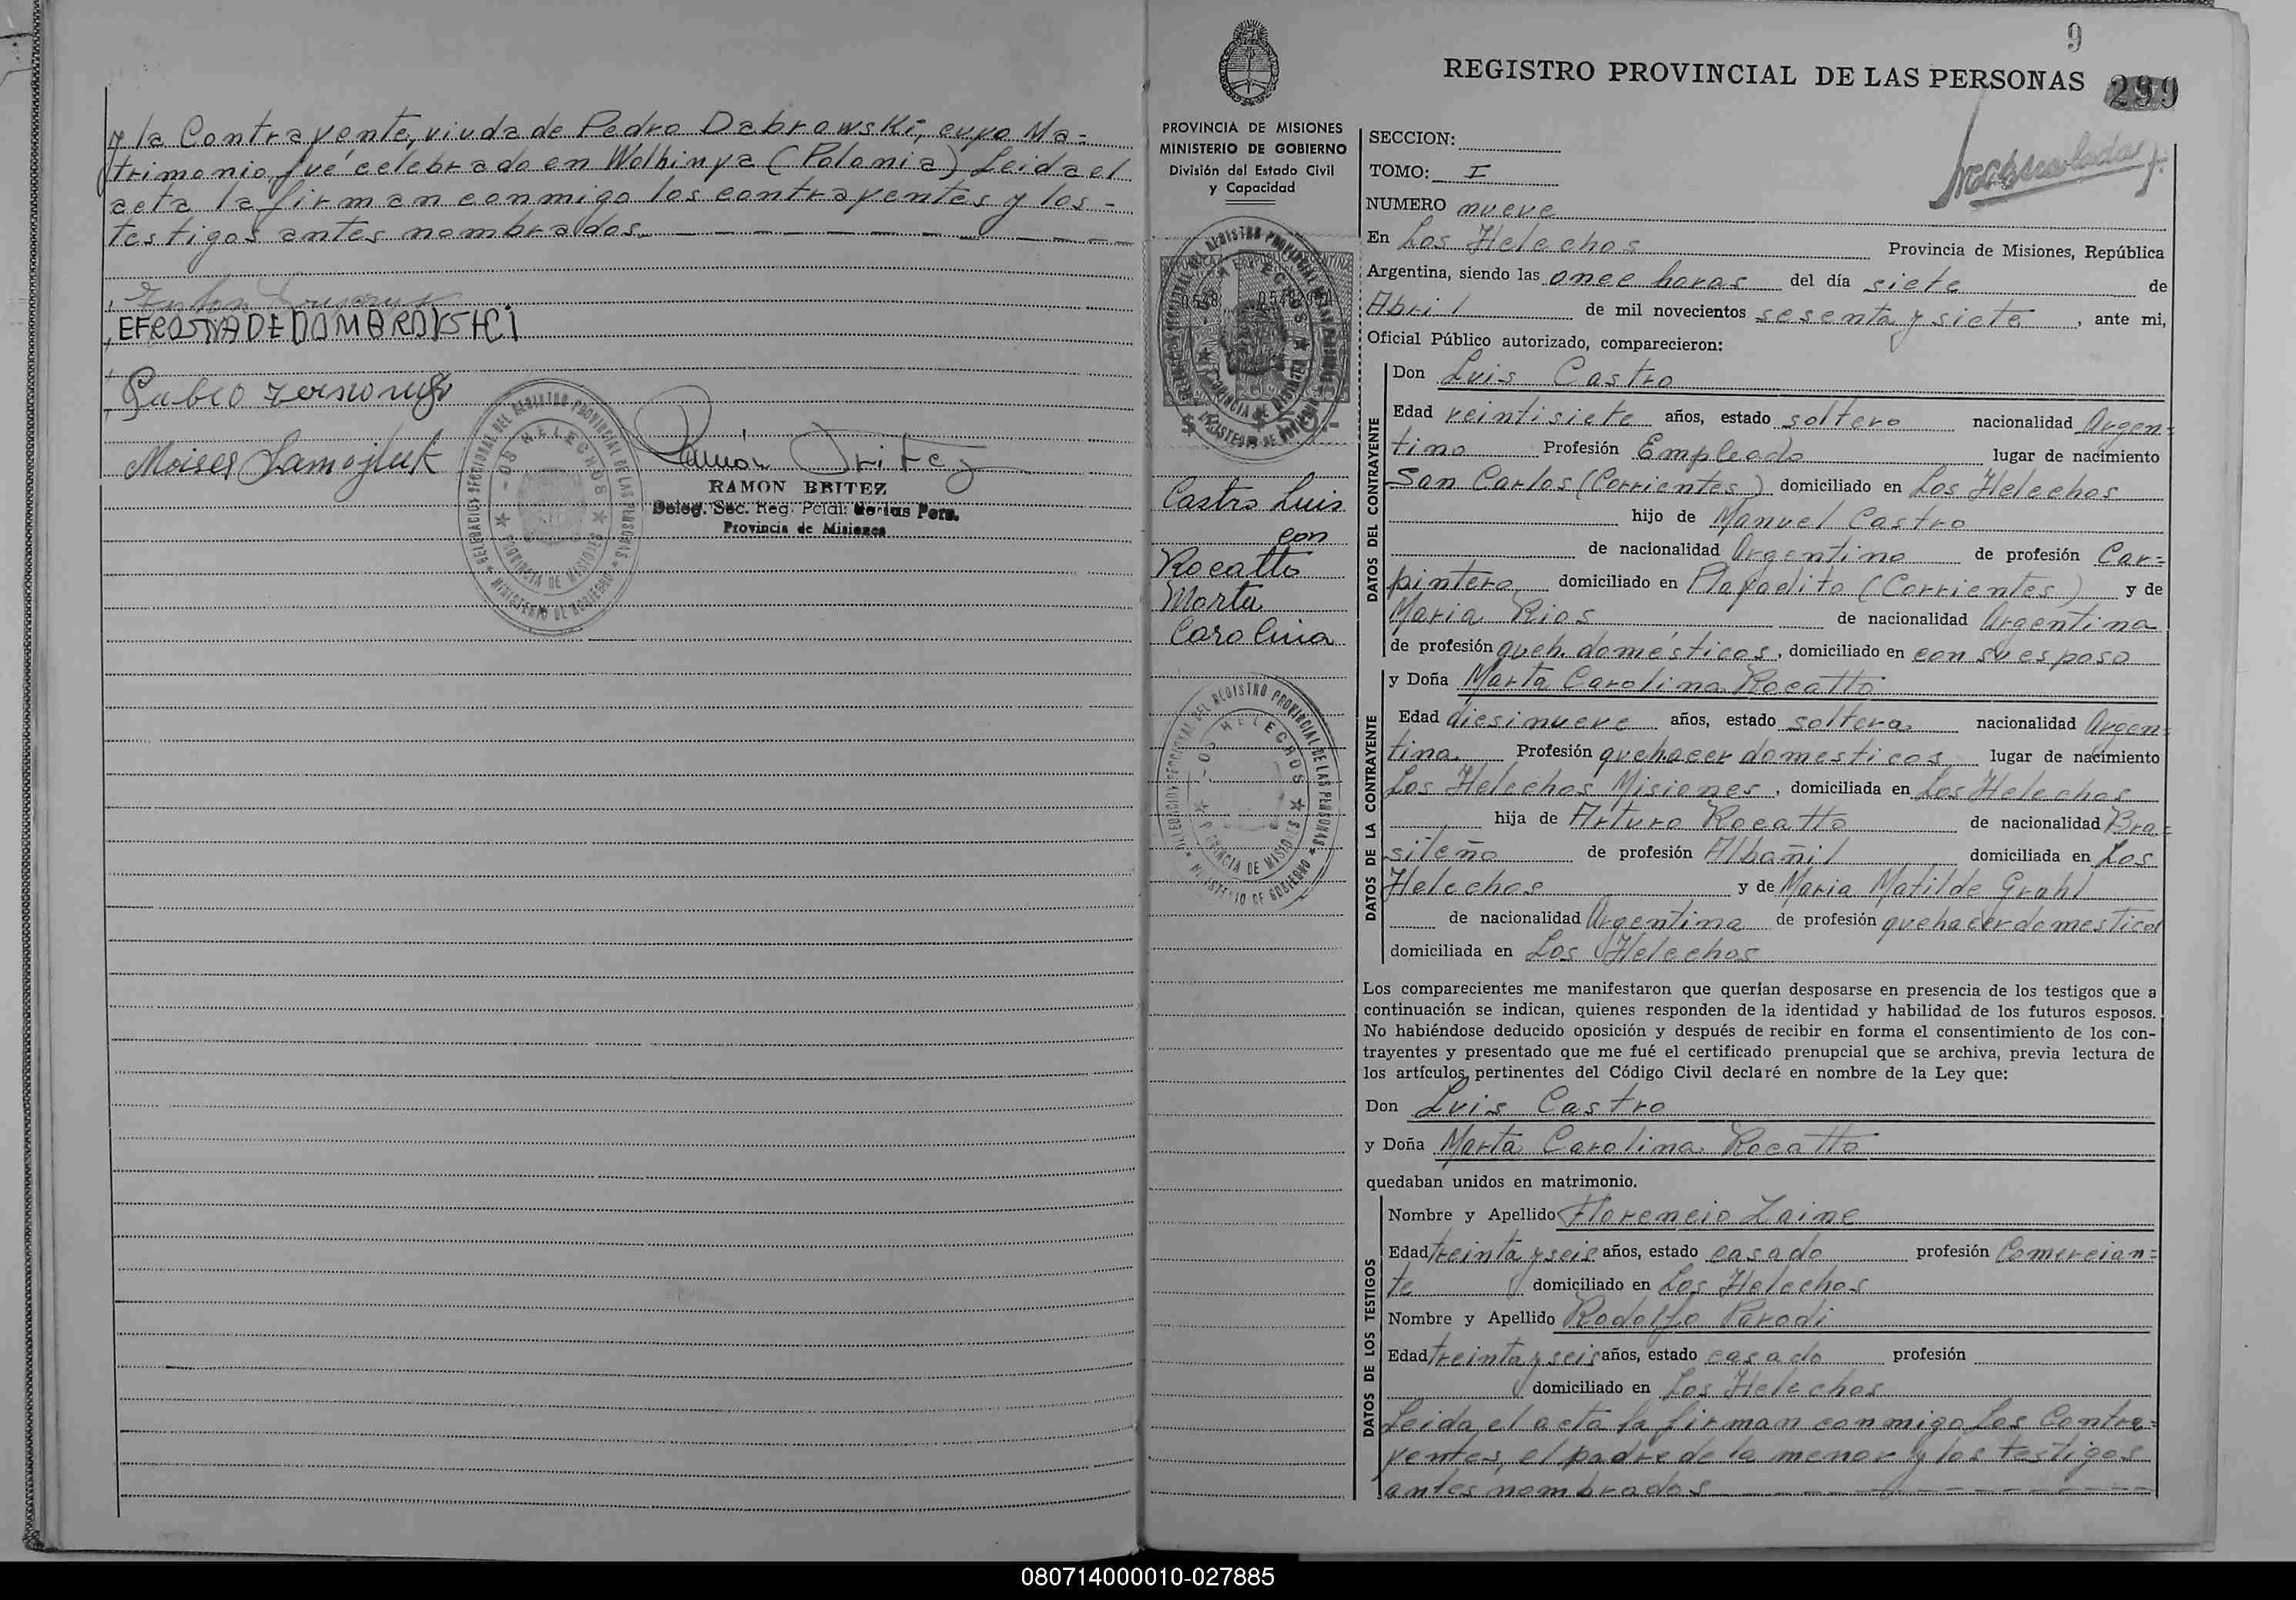 y la Contrayente, viuda de Pedro Dabrowski, cuyo Ma-
trimonio fué celebrado en Wolhinya (Polonia) Leida el
acta la firman conmigo los contrayentes y los -
testigos antes nombrados.
Moises Samojluk
RAMON BRITEZ
Deleg. Sec. Reg. Pcial: de las Pers.
Provincia de Misiones
DELEGACION SECCIONAL DEL REGISTRO PROVINCIAL DE LAS PERSONAS
LOS HELECHOS
PROVINCIA DE MISIONES
MINISTERIO DE GOBIERNO
9
REGISTRO PROVINCIAL DE LAS PERSONAS 299
PROVINCIA DE MISIONES
MINISTERIO DE GOBIERNO
División del Estado Civil
y Capacidad
Castro Luis
con
Rocatto
Marta
Carolina
DELEGACION SECCIONAL DEL REGISTRO PROVINCIAL DE LAS PERSONAS
LOS HELECHOS
PROVINCIA DE MISIONES
MINISTERIO DE GOBIERNO
SECCION:
TOMO: I
NUMERO nueve
En Los Helechos Provincia de Misiones, República
Argentina, siendo las once horas del día siete de
Abril de mil novecientos sesenta y siete, ante mi,
Oficial Público autorizado, comparecieron:
DATOS DEL CONTRAYENTE
Don Luis Castro
Edad veintisiete años, estado soltero nacionalidad Argen=
tino Profesión Empleado lugar de nacimiento
San Carlos (Corrientes) domiciliado en Los Helechos
hijo de Manuel Castro
de nacionalidad Argentino de profesión Car=
pintero domiciliado en Playadito (Corrientes) y de
Maria Rios de nacionalidad Argentina
de profesión queh. domésticos, domiciliado en con su esposo
DATOS DE LA CONTRAYENTE
y Doña Marta Carolina Rocatto
Edad diesinueve años, estado soltera nacionalidad Argen=
tina. Profesión quehacer domesticos lugar de nacimiento
Los Helechos Misiones, domiciliada en Los Helechos
hija de Arturo Rocatto de nacionalidad Bra=
sileño de profesión Albañil domiciliada en Los
Helechos y de Maria Matilde Grahl
de nacionalidad Argentina de profesión quehacer domesticos
domiciliada en Los Helechos
Los comparecientes me manifestaron que querían desposarse en presencia de los testigos que a
continuación se indican, quienes responden de la identidad y habilidad de los futuros esposos.
No habiéndose deducido oposición y después de recibir en forma el consentimiento de los con-
trayentes y presentado que me fué el certificado prenupcial que se archiva, previa lectura de
los artículos pertinentes del Código Civil declaré en nombre de la Ley que:
Don Luis Castro
y Doña Marta Carolina Rocatto
quedaban unidos en matrimonio.
DATOS DE LOS TESTIGOS
Nombre y Apellido Florencio Zaine
Edad treinta y seis años, estado casado profesión Comercian=
te domiciliado en Los Helechos
Nombre y Apellido Rodolfo Parodi
Edad treinta y seis años, estado casado profesión
domiciliado en Los Helechos
Leida el acta la firman conmigo Los Contra=
yentes, el padre de la menor y los testigos
antes nombrados
080714000010-027885